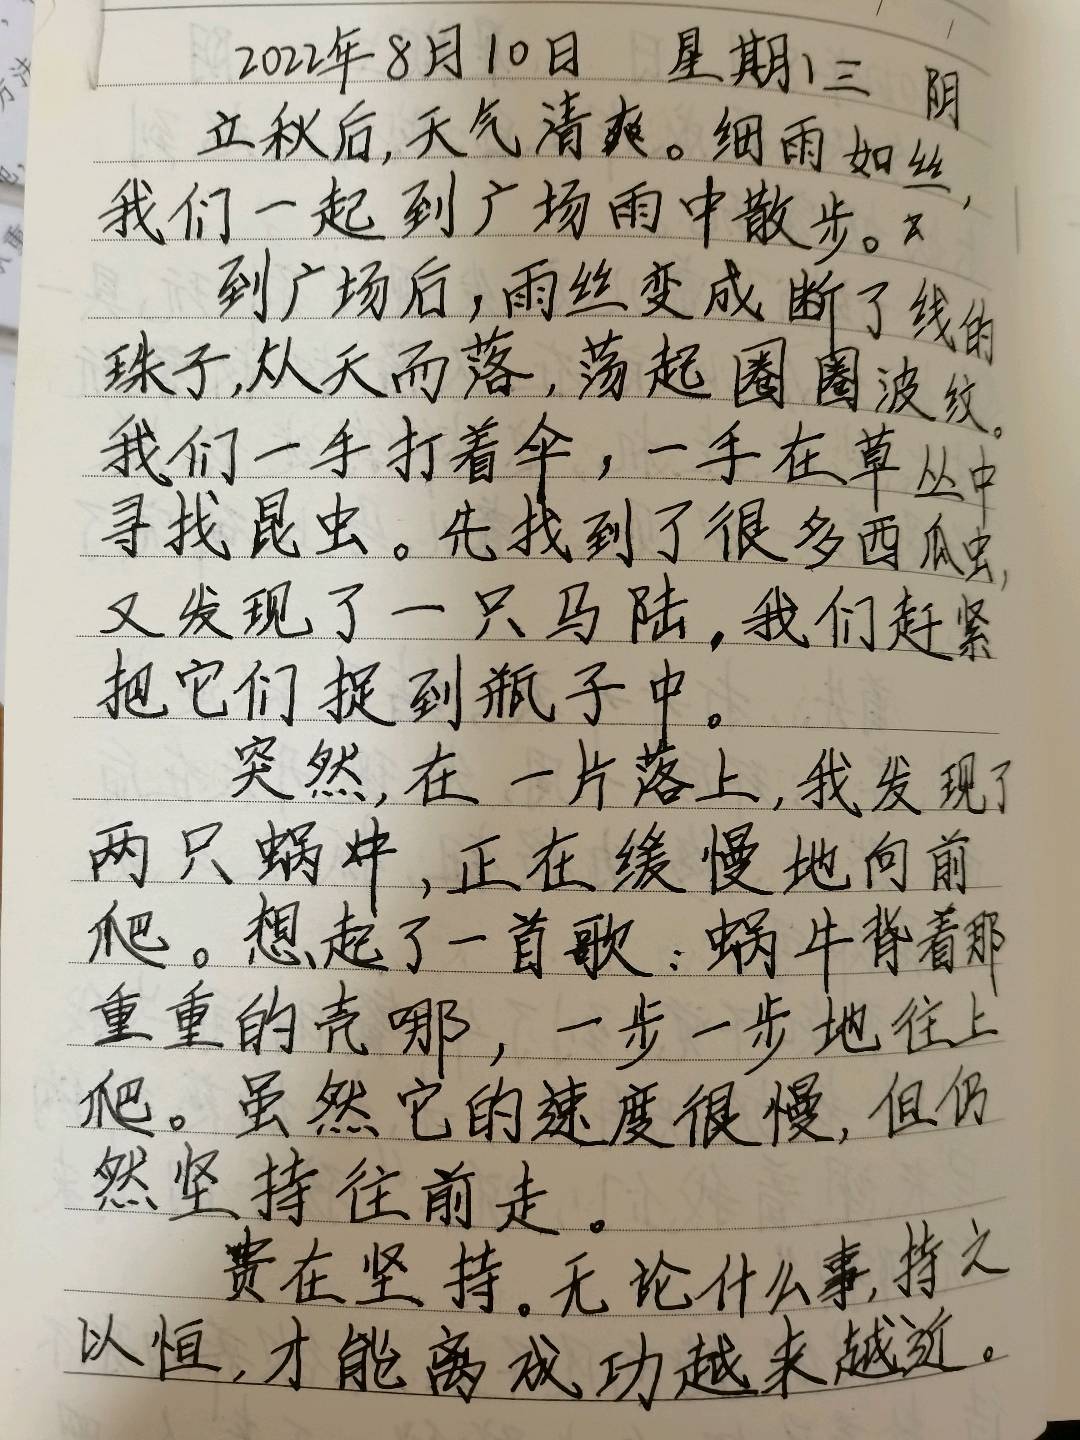 2022年8月10日 星期三 阴
立秋后,天气清爽。细雨如丝,
我们一起到广场雨中散步。
到广场后,雨丝变成断了线的
珠子,从天而落,荡起圈圈波纹。
我们一手打着伞,一手在草丛中
寻找昆虫。先找到了很多西瓜虫,
又发现了一只马陆,我们赶紧
把它们捉到瓶子中。
突然,在一片落上,我发现了
两只蜗牛,正在缓慢地向前
爬。想起了一首歌:蜗牛背着那
重重的壳哪,一步一步地往上
爬。虽然它的速度很慢,但仍
然坚持往前走。
贵在坚持。无论什么事,持之
以恒,才能离成功越来越近。